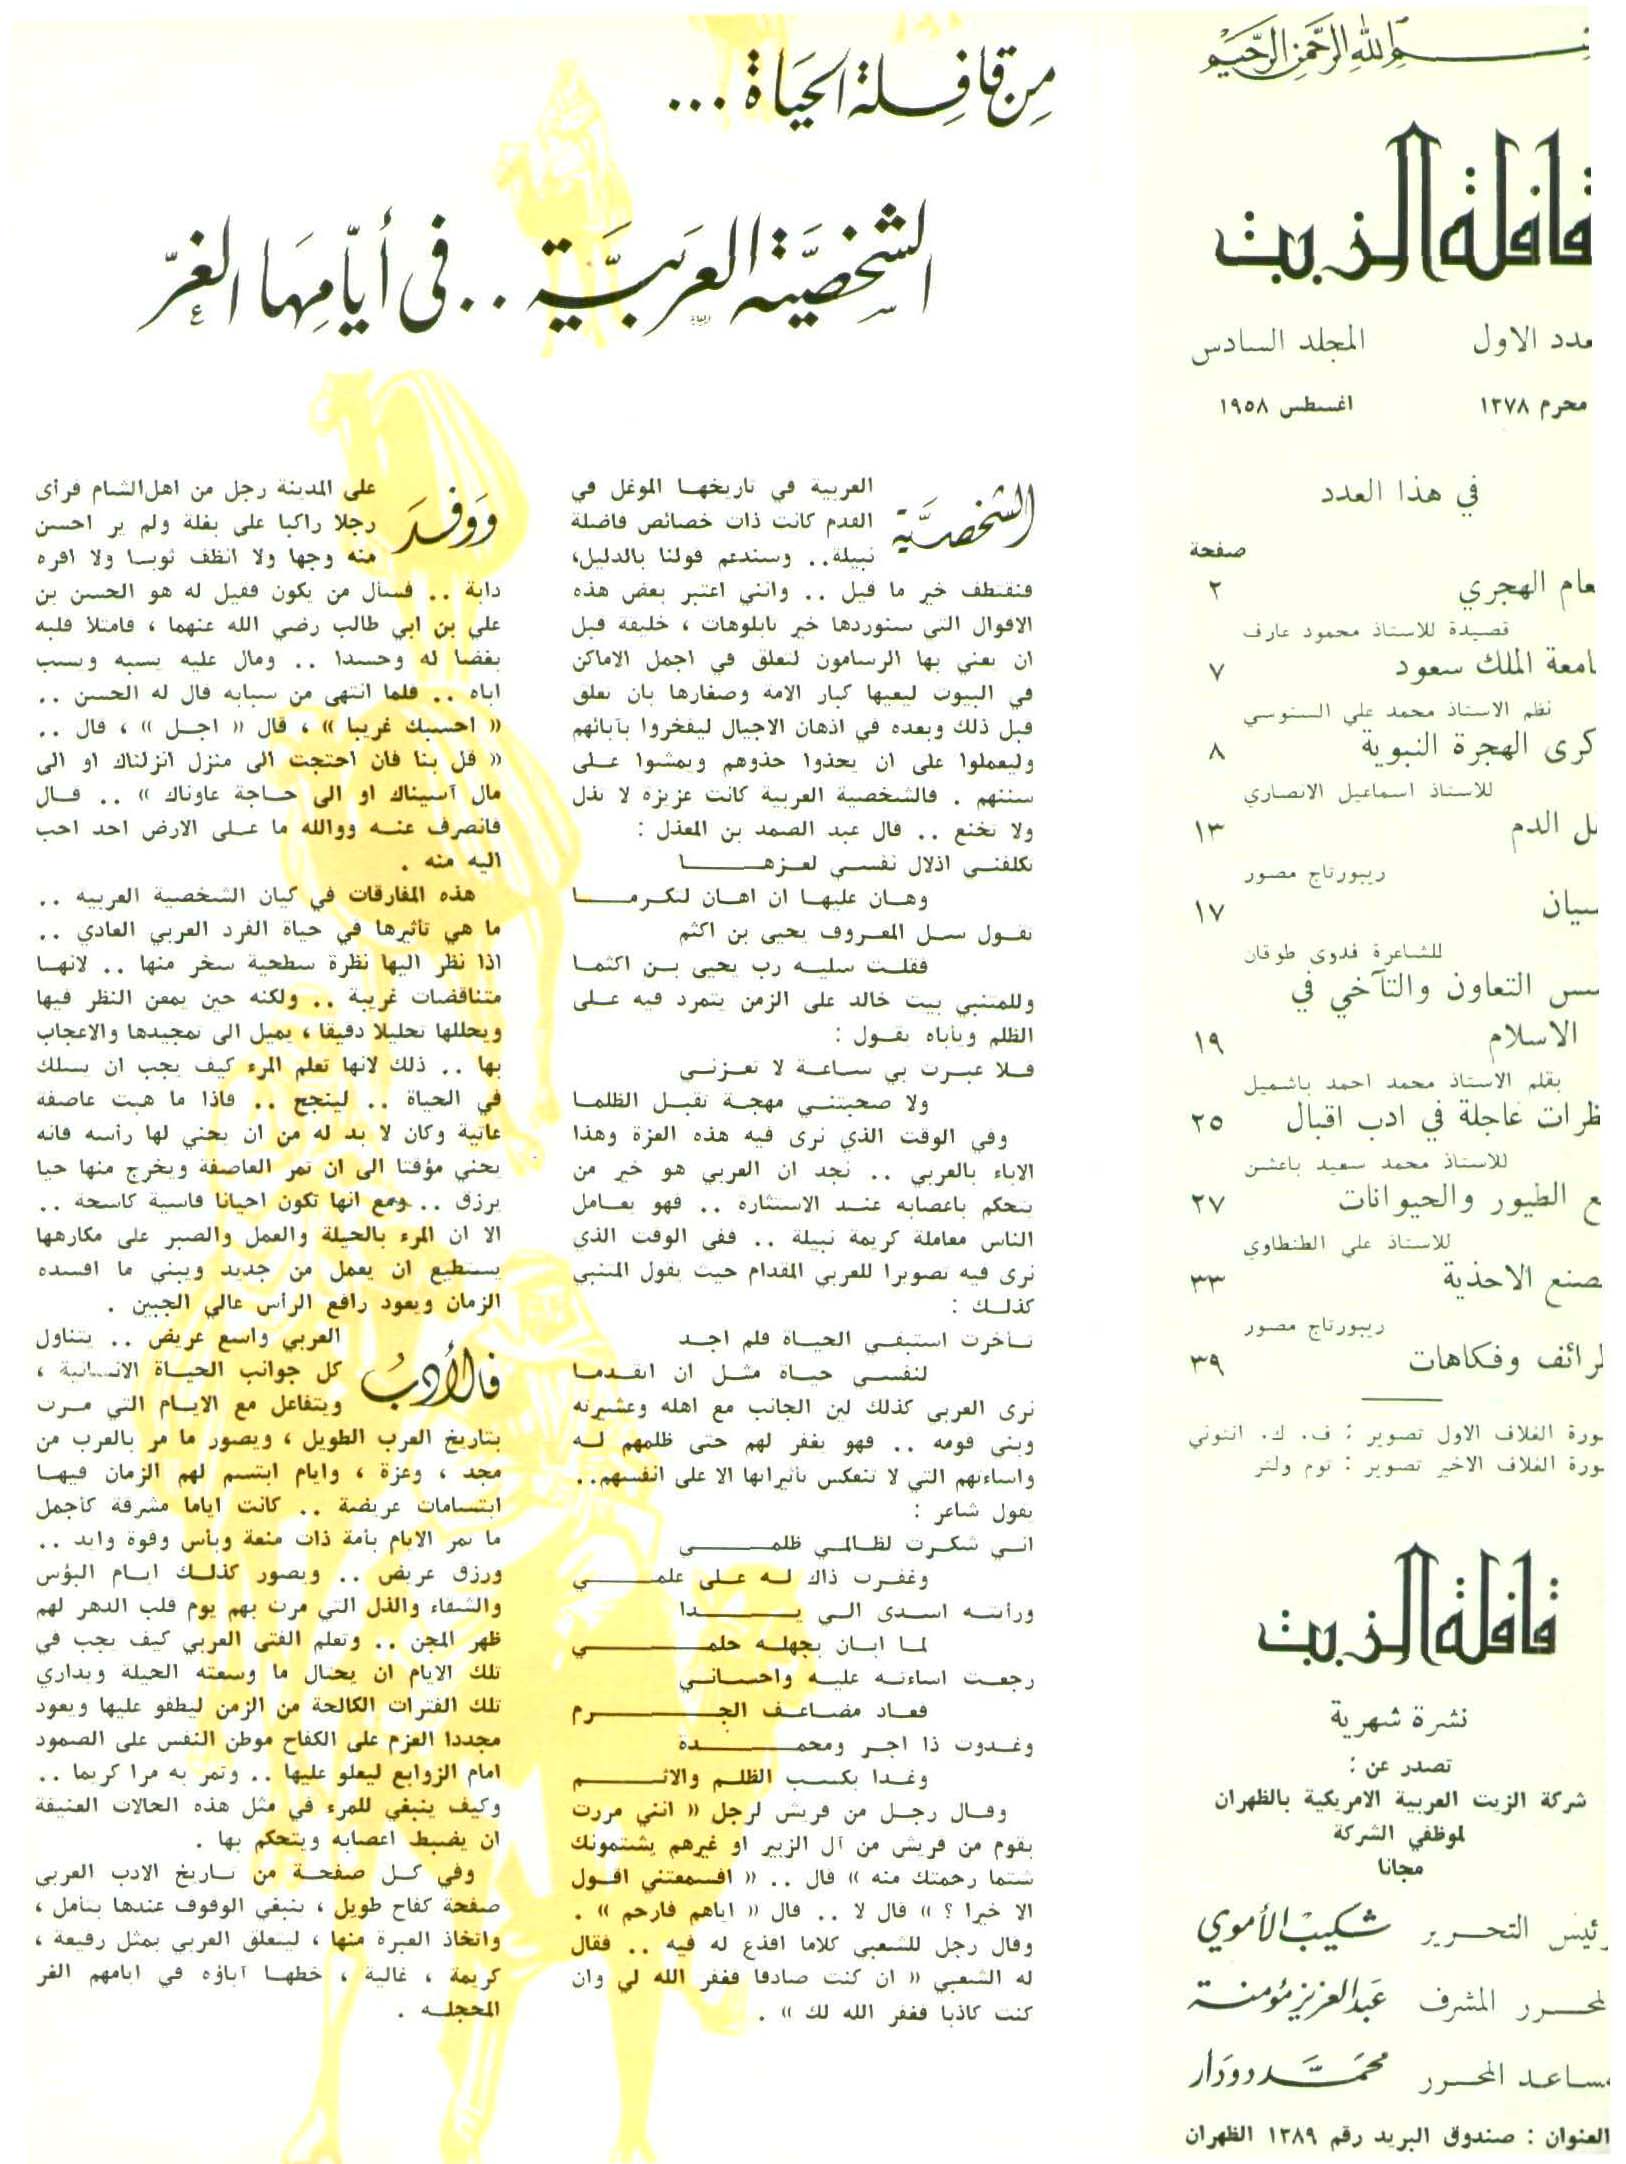 بسم الله الرحمن الرحيم
قافلة الزيت
عدد الاول المجلد السادس
محرم ١٣٧٨ اغسطس ١٩٥٨
في هذا العدد
صفحة
عام الهجري ٢
قصيدة للاستاذ محمود عارف
امعة الملك سعود ٧
نظم الاستاذ محمد علي السنوسي
كرى الهجرة النبوية ٨
للاستاذ اسماعيل الانصاري
ل الدم ١٣
ريبورتاج مصور
سيان ١٧
للشاعرة فدوى طوقان
سس التعاون والتآخي في
الاسلام ١٩
بقلم الاستاذ محمد احمد باشميل
ظرات عاجلة في ادب اقبال ٢٥
للاستاذ محمد سعيد باعشن
ع الطيور والحيوانات ٢٧
للاستاذ علي الطنطاوي
صنع الاحذية ٣٣
ريبورتاج مصور
رائف وفكاهات ٣٩
ورة الغلاف الاول تصوير : ف. ك. انتوني
ورة الغلاف الاخير تصوير : توم ولتر
قافلة الزيت
نشرة شهرية
تصدر عن :
شركة الزيت العربية الامريكية بالظهران
لموظفي الشركة
مجانا
رئيس التحرير شكيب الأموي
المحرر المشرف عبد العزيز مؤمنة
مساعد المحرر محمد دودار
العنوان : صندوق البريد رقم ١٣٨٩ الظهران
من قافلة الحياة ...
الشخصية العربية .. في أيامها الغر
الشخصية العربية في تاريخها الموغل في
القدم كانت ذات خصائص فاضلة
نبيلة.. وسندعم قولنا بالدليل،
فنقتطف خير ما قيل .. وانني اعتبر بعض هذه
الاقوال التي سنوردها خير تابلوهات ، خليقة قبل
ان يعني بها الرسامون لتعلق في اجمل الاماكن
في البيوت ليعيها كبار الامة وصغارها بان تعلق
قبل ذلك وبعده في اذهان الاجيال ليفخروا بآبائهم
وليعملوا على ان يحذوا حذوهم ويمشوا على
سننهم . فالشخصية العربية كانت عزيزة لا تذل
ولا تخنع .. قال عبد الصمد بن المعذل :
تكلفني اذلال نفسي لعزها
وهان عليها ان اهان لتكرما
تقول سل المعروف يحيى بن اكثم
فقلت سليه رب يحيى بن اكثما
وللمتنبي بيت خالد على الزمن يتمرد فيه على
الظلم ويأباه يقول :
فلا عبرت بي ساعة لا تعزني
ولا صحبتني مهجة تقبل الظلما
وفي الوقت الذي نرى فيه هذه العزة وهذا
الاباء بالعربي .. نجد ان العربي هو خير من
يتحكم باعصابه عند الاستثارة .. فهو يعامل
الناس معاملة كريمة نبيلة .. ففي الوقت الذي
نرى فيه تصويرا للعربي المقدام حيث يقول المتنبي
كذلك :
تأخرت استبقي الحياة فلم اجد
لنفسي حياة مثل ان اتقدما
نرى العربي كذلك لين الجانب مع اهله وعشيرته
وبني قومه .. فهو يغفر لهم حتى ظلمهم له
واساءتهم التي لا تنعكس تأثيراتها الا على انفسهم..
يقول شاعر :
اني شكرت لظالمي ظلمي
وغفرت ذاك له على علمي
ورأيته اسدى الي يدا
لما ابان بجهله حلمي
رجعت اساءته عليه واحساني
فعاد مضاعف الجرم
وغدوت ذا اجر ومحمدة
وغدا بكسب الظلم والاثم
وقال رجل من قريش لرجل « انني مررت
بقوم من قريش من آل الزبير او غيرهم يشتمونك
شتما رحمتك منه » قال .. « افسمعتني اقول
الا خيرا ؟ » قال لا .. قال « اياهم فارحم » .
وقال رجل للشعبي كلاما اقذع له فيه .. فقال
له الشعبي « ان كنت صادقا فغفر الله لي وان
كنت كاذبا فغفر الله لك » .
ووفد على المدينة رجل من اهل الشام فرأى
رجلا راكبا على بغلة ولم ير احسن
منه وجها ولا انظف ثوبا ولا افره
دابة .. فسأل من يكون فقيل له هو الحسن بن
علي بن ابي طالب رضي الله عنهما ، فامتلأ قلبه
بغضا له وحسدا .. ومال عليه يسبه ويسب
اباه .. فلما انتهى من سبابه قال له الحسن ..
« احسبك غريبا » ، قال « اجل » ، قال ..
« قل بنا فان احتجت الى منزل انزلناك او الى
مال آسيناك او الى حاجة عاوناك » .. قال
فانصرف عنه ووالله ما على الارض احد احب
اليه منه .
هذه المفارقات في كيان الشخصية العربيه ..
ما هي تأثيرها في حياة الفرد العربي العادي ..
اذا نظر اليها نظرة سطحية سخر منها .. لانها
متناقضات غريبة .. ولكنه حين يمعن النظر فيها
ويحللها تحليلا دقيقا ، يميل الى تمجيدها والاعجاب
بها .. ذلك لانها تعلم المرء كيف يجب ان يسلك
في الحياة .. لينجح .. فاذا ما هبت عاصفة
عاتية وكان لا بد له من ان يحني لها رأسه فانه
يحني مؤقتا الى ان تمر العاصفة ويخرج منها حيا
يرزق .. ومع انها تكون احيانا قاسية كاسحة ..
الا ان المرء بالحيلة والعمل والصبر على مكارهها
يستطيع ان يعمل من جديد ويبني ما افسده
الزمان ويعود رافع الرأس عالي الجبين .
فالأدب العربي واسع عريض .. يتناول
كل جوانب الحياة الانسانية ،
ويتفاعل مع الايام التي مرت
بتاريخ العرب الطويل ، ويصور ما مر بالعرب من
مجد ، وعزة ، وايام ابتسم لهم الزمان فيها
ابتسامات عريضة .. كانت اياما مشرقة كأجمل
ما تمر الايام بأمة ذات منعة وبأس وقوة وايد ..
ورزق عريض .. ويصور كذلك ايام البؤس
والشقاء والذل التي مرت بهم يوم قلب الدهر لهم
ظهر المجن .. وتعلم الفتى العربي كيف يجب في
تلك الايام ان يحتال ما وسعته الحيلة ويداري
تلك الفترات الكالحة من الزمن ليطفو عليها ويعود
مجددا العزم على الكفاح موطن النفس على الصمود
امام الزوابع ليعلو عليها .. وتمر به مرا كريما ..
وكيف ينبغي للمرء في مثل هذه الحالات العنيفة
ان يضبط اعصابه ويتحكم بها .
وفي كل صفحة من تاريخ الادب العربي
صفحة كفاح طويل ، ينبغي الوقوف عندها بتأمل ،
واتخاذ العبرة منها ، ليتعلق العربي بمثل رفيعة ،
كريمة ، غالية ، خطها آباؤه في ايامهم الغر
المحجله .